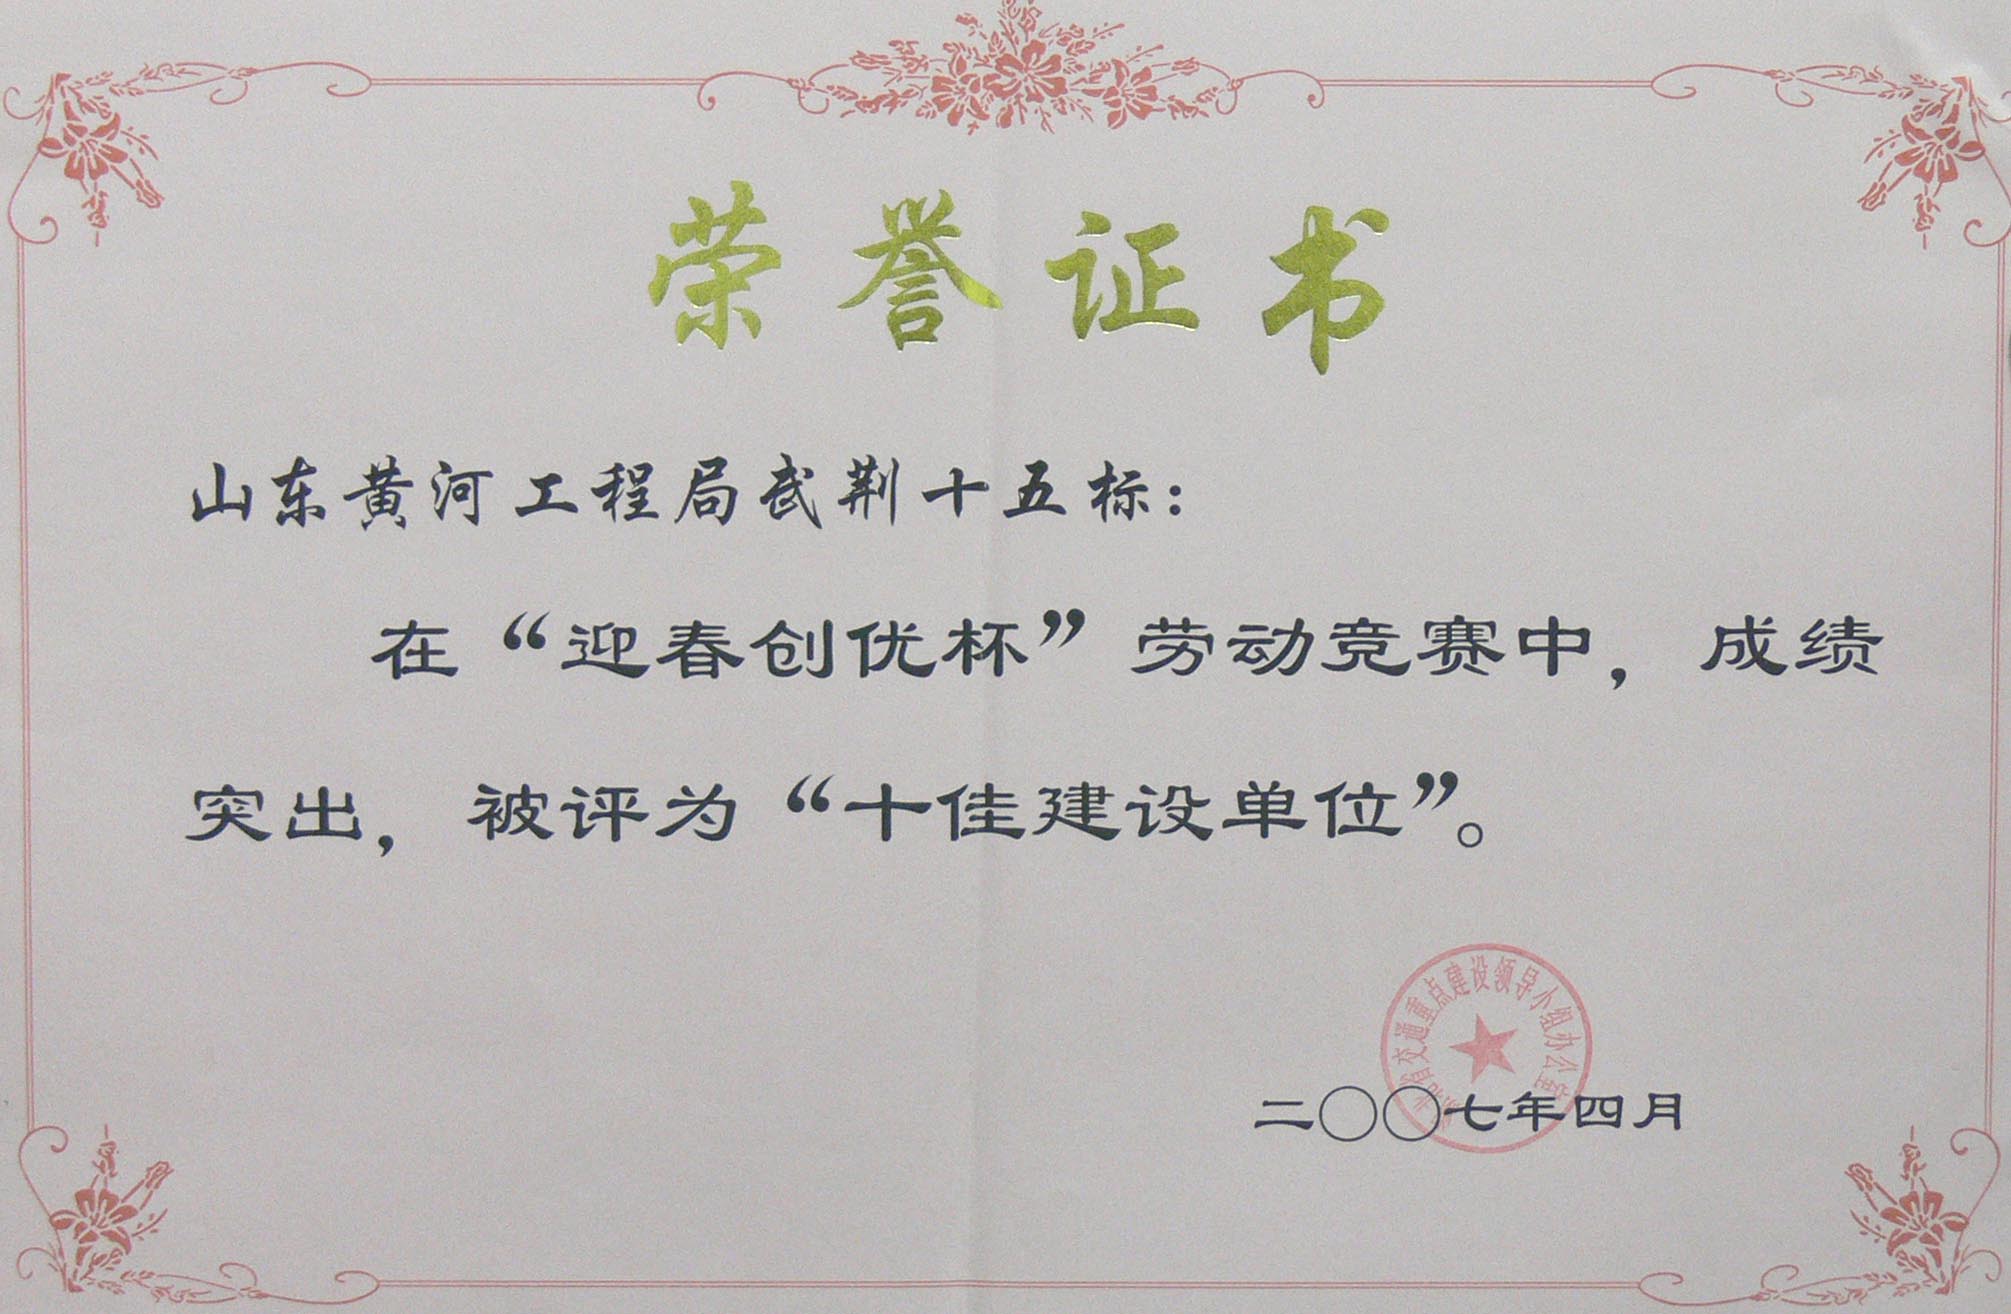 荣誉证书
山东黄河工程局武荆十五标：
在“迎春创优杯”劳动竞赛中，成绩
突出，被评为“十佳建设单位”。
湖北省交通重点建设领导小组办公室
二〇〇七年四月